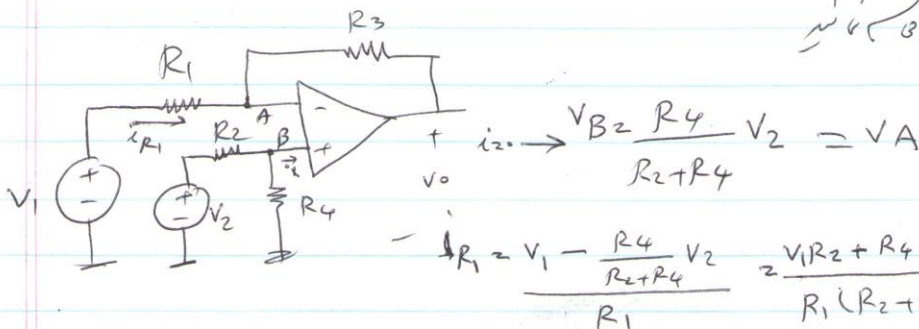 R3
R1
A
-
iR1
R2
B
+
i
+
-
V1
+
-
V2
R4
+
vo
i=0 → VB = R4 / (R2+R4) V2 = VA
- iR1 = (V1 - R4 / (R2+R4) V2) / R1 = V1R2 + R4 / R1(R2+